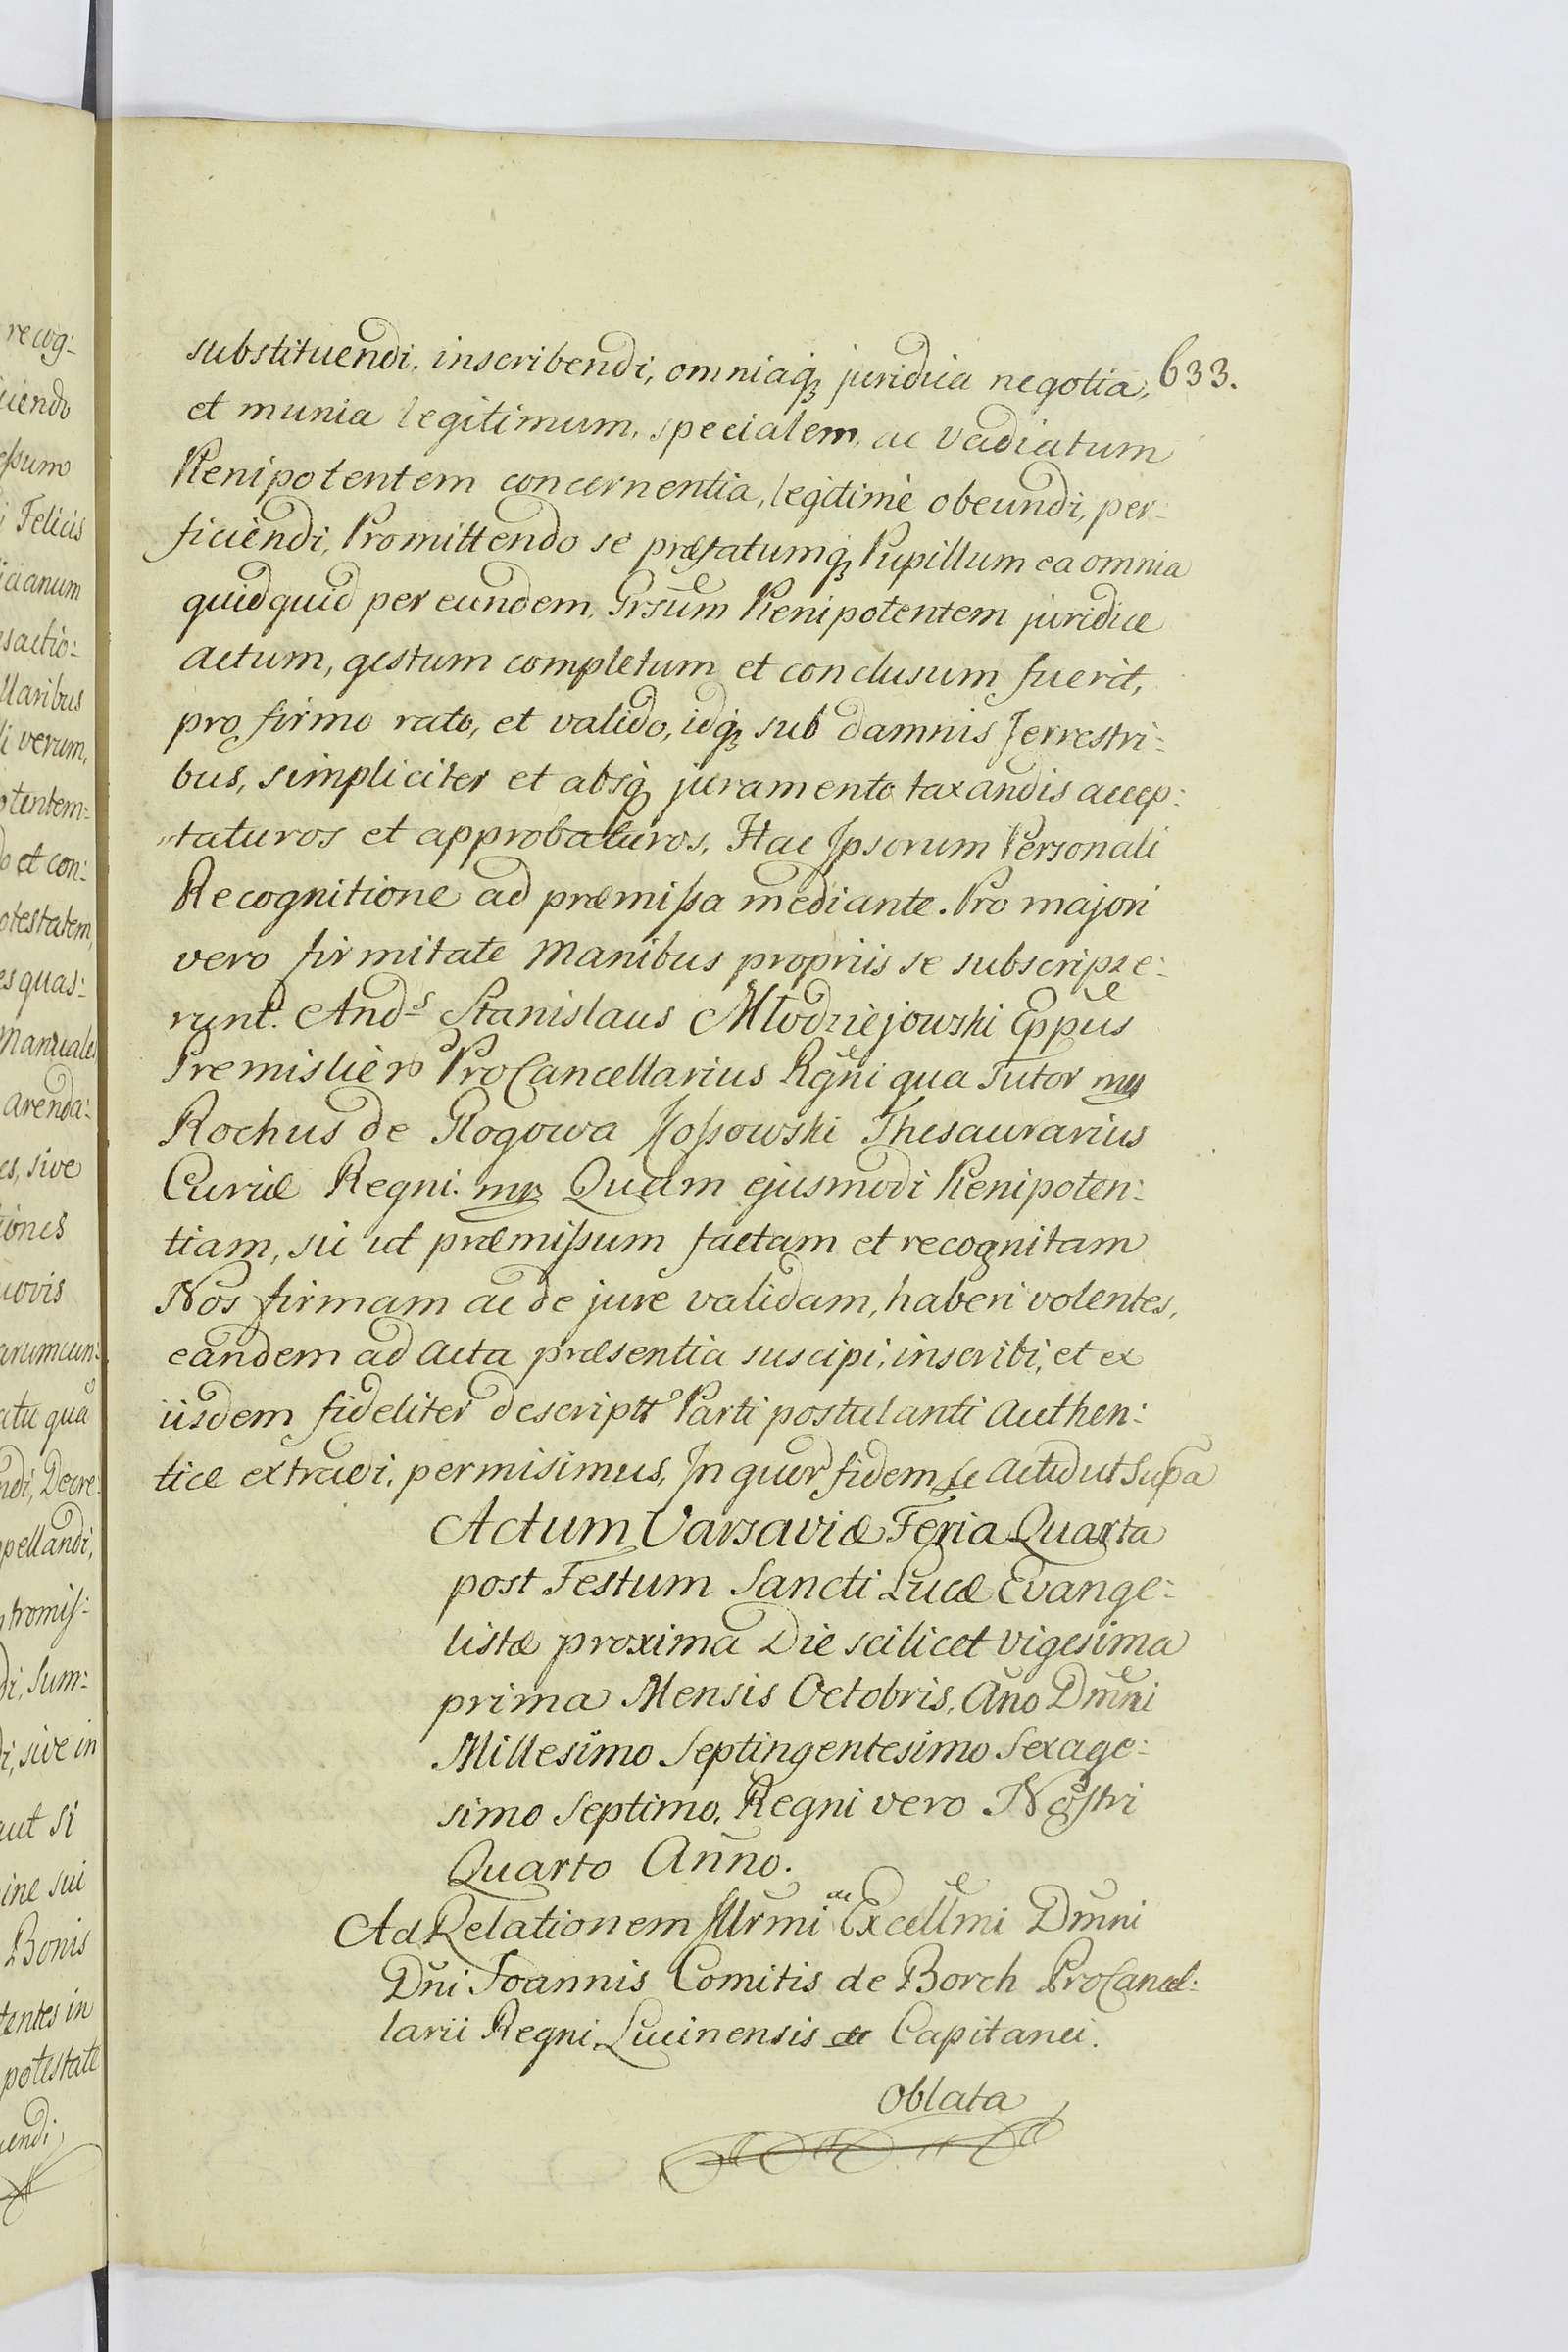 substituendi, inscribendi, omniaq; juridica negotia, 633.
et munia legitimum, specialem, ac vadiatum
Plenipotentem concernentia, legitimè obeundi, per:
ficiendi, Promittendo se præfatumq; Pupillum ea omnia
quidquid per eundem, Grsum Plenipotentem juridice
actum, gestum completum et conclusum fuerit,
pro firmo rato, et valido, idq; sub damnis Terrestri:
bus, simpliciter et absq; juramento taxandis accep:
taturos et approbaturos, Hac Ipsorum Personali
Recognitione ad præmissa mediante. Pro majori
vero firmitate Manibus propriis se subscripse:
runt. Ands Stanislaus Młodziejowski Eppus
Premislien ProCancellarius Rgni qua Tutor mp
Rochus de Głogowa Kossowski Thesaurarius
Curiæ Regni. mp Quam ejusmodi Plenipoten:
tiam, sic ut præmissum factam et recognitam
Nos firmam ac de jure validam, haberi volentes,
eandem ad Acta præsentia suscipi, inscribi, et ex
iisdem fideliter descriptt Parti postulanti Authen:
tice extradi, permisimus, In quor fidem Actud ut Supa
Actum Varsaviæ Feria Quarta
post Festum Sancti Lucæ Evange:
listæ proxima Die scilicet vigesima
prima Mensis Octobris, Ano Dmni
Millesimo Septingentesimo Sexage:
simo Septimo, Regni vero Nostri
Quarto Anno.
Ad Relationem Illrmi ac Excellmi Dmni
Dni Joannis Comitis de Borch ProCancel:
larii Regni, Lucinensis Capitanei.
Oblata
recog:
Felicis
icianum
sactio:
llaribus
li verum,
otentem:
do et con:
otestatem,
es quas:
Manuales
arenda:
es, sive
tiones
uovis
arumcun:
atu quâ
ndi, Decre:
ppellandi,
tromis:
di, Sum:
di, sive in
aut si
ine sui
Bonis
tentes in
potestate
uendi,